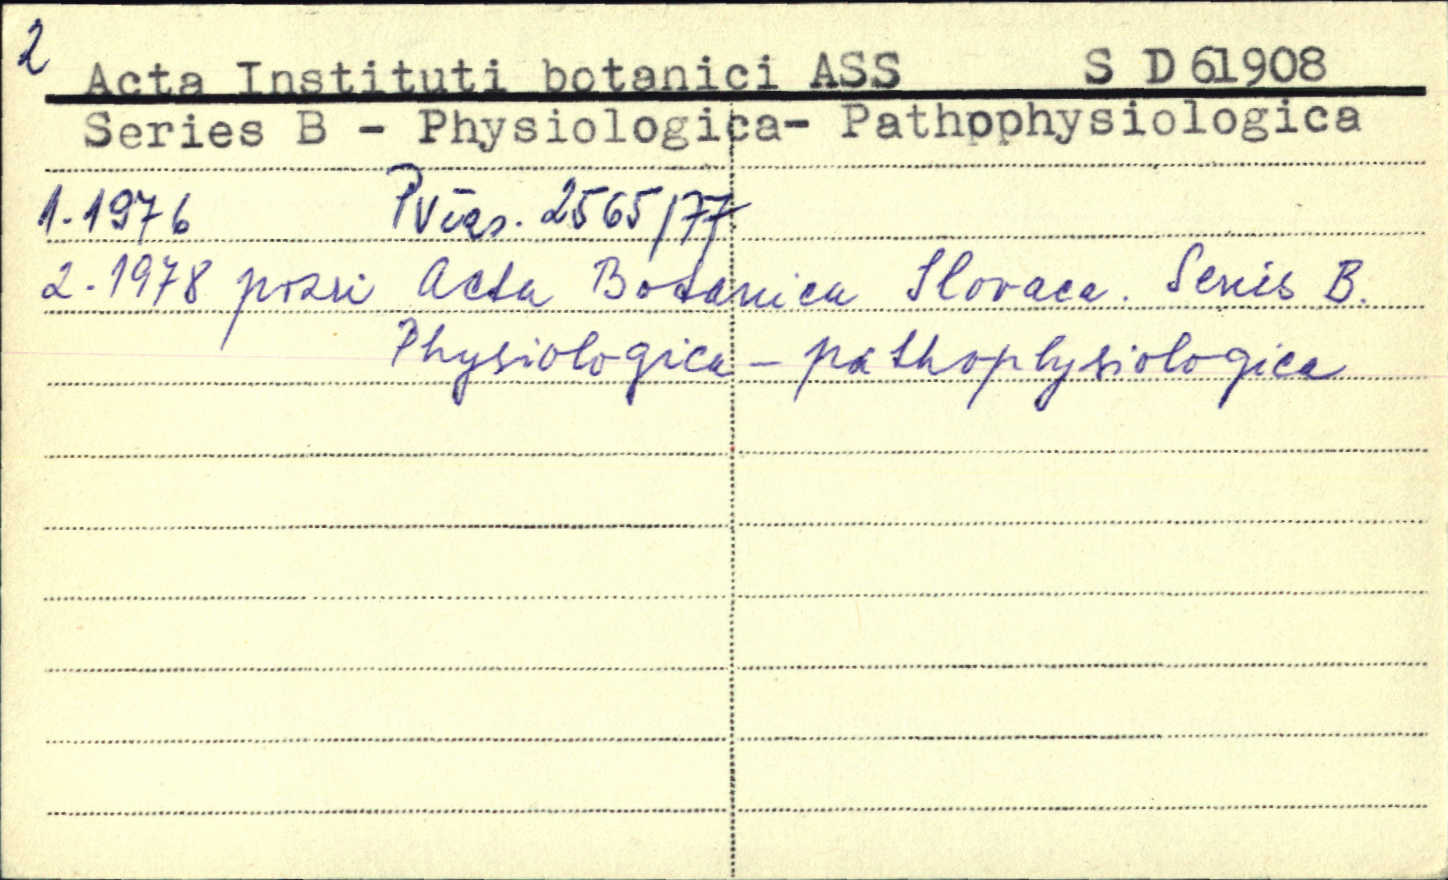 2
Acta Instituti botanici ASS S D 61908
Series B - Physiologica- Pathophysiologica
1.1976 2565/77
2.1978 pozri Acta Botanica Slovaca. Series B.
Physiologica - pathophysiologica